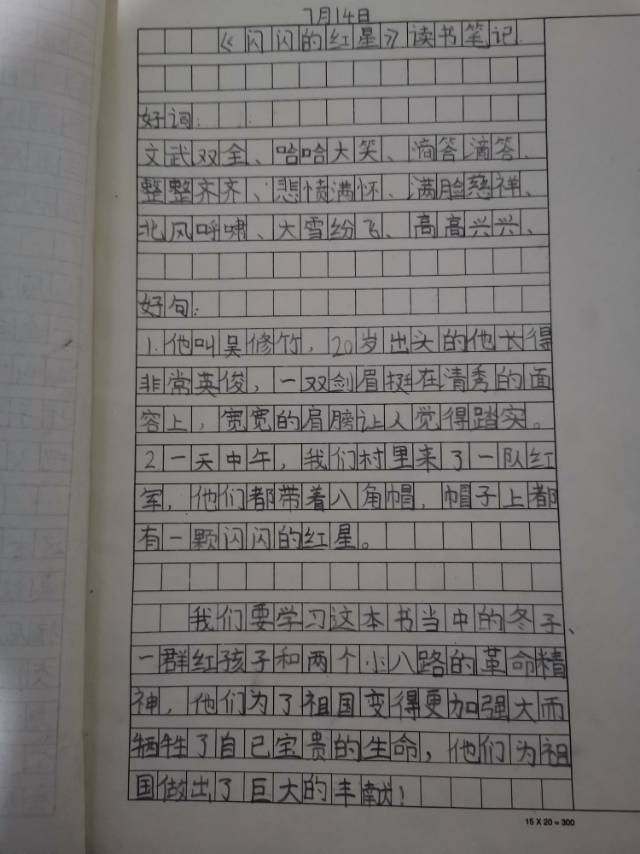 7月14日
《闪闪的红星》读书笔记
好词:
文武双全、哈哈大笑、滴答滴答、
整整齐齐、悲愤满怀、满脸慈祥、
北风呼啸、大雪纷飞、高高兴兴、
好句:
1.他叫吴修竹,20岁出头的他长得
非常英俊,一双剑眉挺在清秀的面
容上,宽宽的肩膀让人觉得踏实。
2一天中午,我们村里来了一队红
军,他们都带着八角帽,帽子上都
有一颗闪闪的红星。
我们要学习这本书当中的冬子、
一群红孩子和两个小八路的革命精
神,他们为了祖国变得更加强大而
牺牲了自己宝贵的生命,他们为祖
国做出了巨大的丰献!
15 X 20 = 300